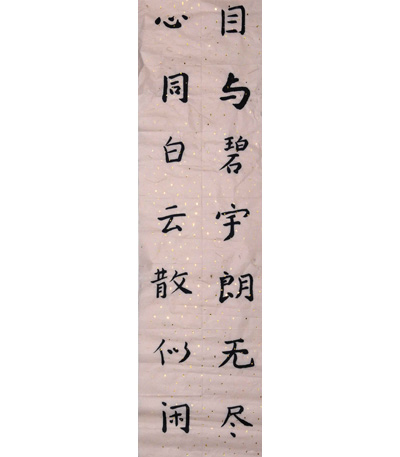 目与碧宇朗无尽
心同白云散似闲